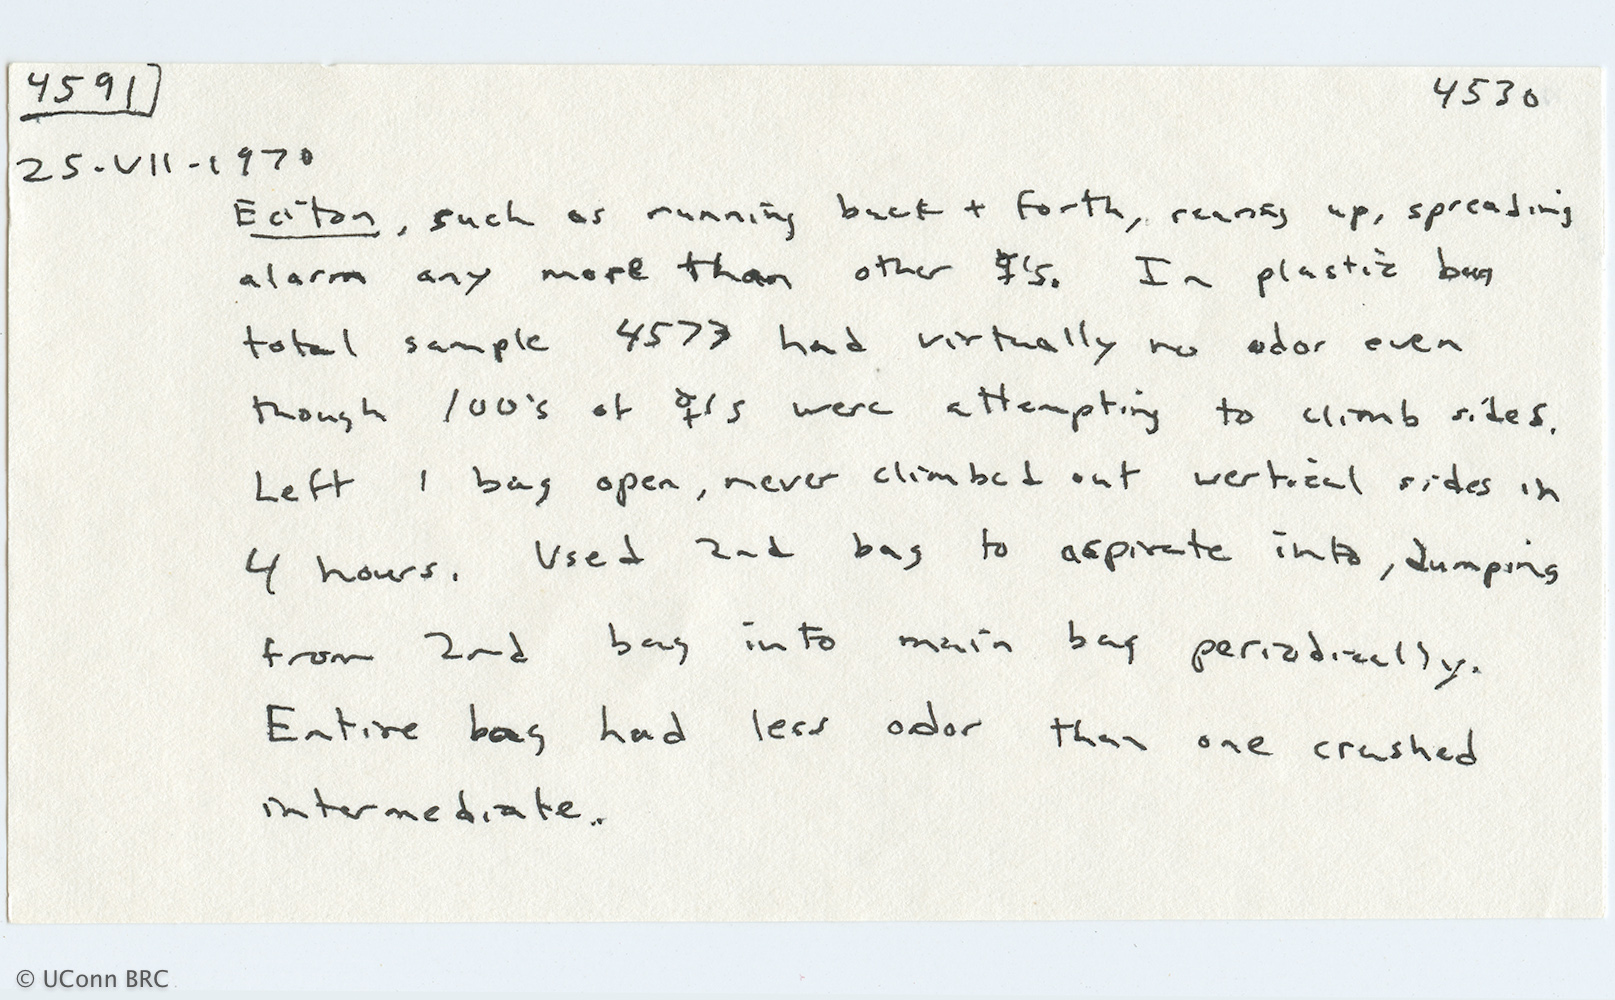 4591 4530
25-VII-1970
Eciton, such as running back + forth, rearing up, spreading
alarm any more than other ☿'s. In plastic bag
total sample 4573 had virtually no odor even
though 100's of ☿'s were attempting to climb sides.
Left 1 bag open, never climbed out vertical sides in
4 hours. Used 2nd bag to aspirate into, dumping
from 2nd bag into main bag periodically.
Entire bag had less odor than one crushed
intermediate.
© UConn BRC